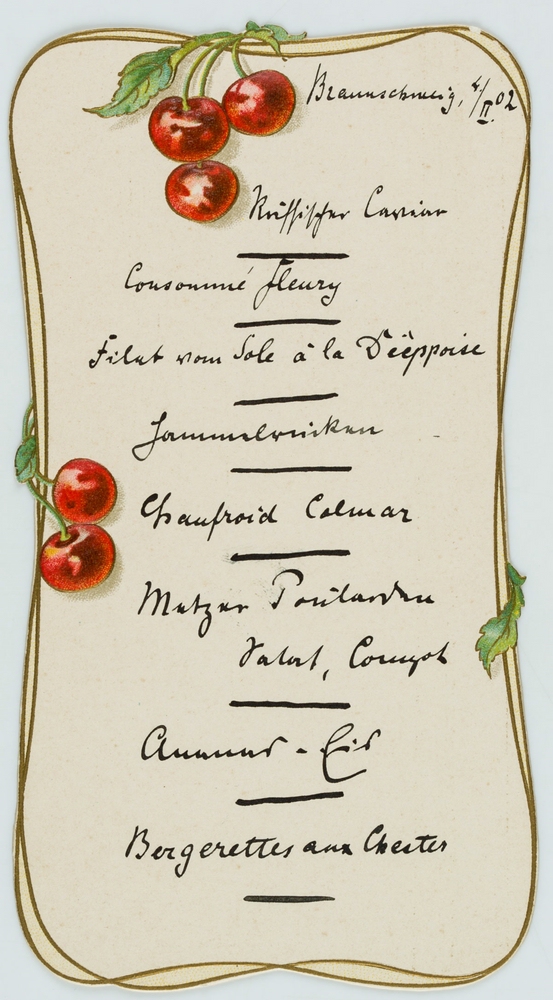 Braunschweig, 4/II.02
Russischer Caviar
Consommé Fleury
Filet vom Sole à la Diéppoise
Hammelrücken
Chaufroid Colmar
Metzer Poularden
Salat, Compot
Ananas-Eis
Bergerettes aux Chester